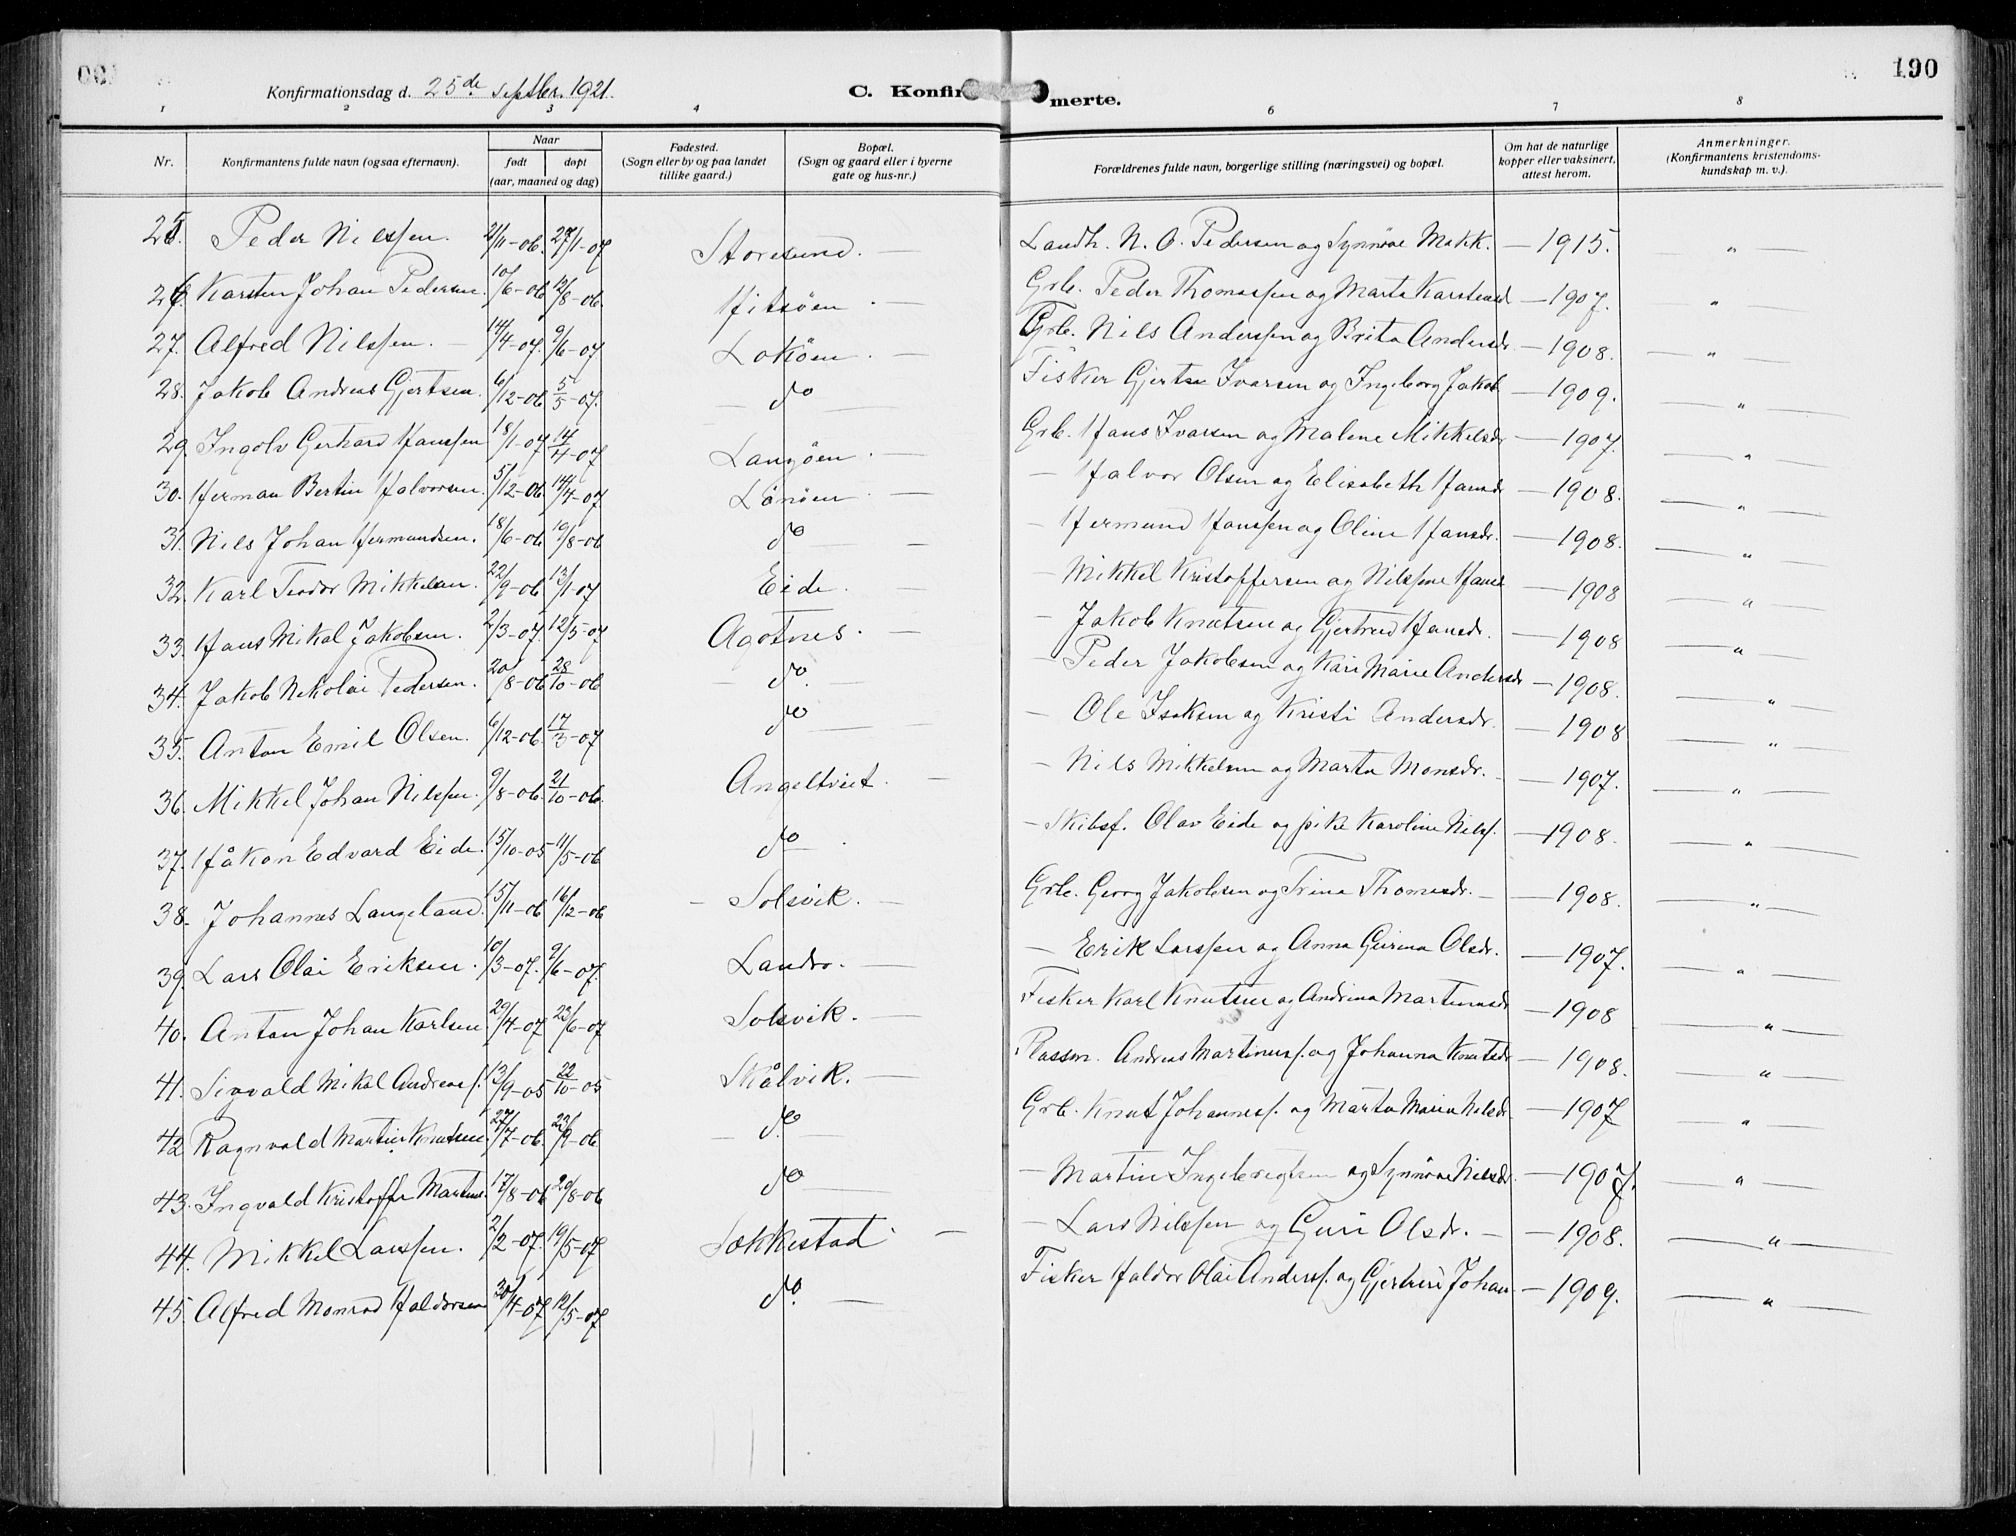 190
Konfirmationsdag d. 25de Septbr. 1921.
C. Konfirmerte.
1 2 3 4 6 7 8
Nr. Konfirmantens fulde navn (ogsaa efternavn). Naar født døpt (aar, maaned og dag) Fødested. (Sogn eller by og paa landet tillike gaard.) Bopæl. (Sogn og gaard eller i byerne gate og hus-nr.) Forældrenes fulde navn, borgerlige stilling (næringsvei) og bopæl. Om hat de naturlige kopper eller vaksinert, attest herom. Anmerkninger. (Konfirmantens kristendoms-kundskap m. v.).
25. Peder Nilssen. 2/11-06. 27/1-07 Storesund. — Landh. N. O. Pedersen og Synnøve Mikk. — 1915. "
26. Karsten Johan Pedersen. 10/6-06 12/8-06. Hitsøen. — Grb. Peder Thomassen og Marta Karstensd — 1907. "
27. Alfred Nilssen. — 14/4-07. 9/6-07 Lokøen. — Grb. Nils Anderssen og Brita Andersdr. — 1908. "
28. Jakob Andreas Gjertsen. 6/12-06 5/5-07. — do — Fisker Gjert Ivarsen og Ingeborg Jakob — 1909. "
29. Ingolv Gerhard Hanssen 18/1-07 14/4-07 Langøen. — Grb. Hans Ivarsen og Malene Mikkelsdr — 1907. "
30. Herman Bertin Halvorsen. 5/12-06 14/4-07 Lønøen. — — Halvor Olsen og Elisabeth Hansdr — 1908. "
31. Nils Johan Hermundsen. 18/6-06 19/8-06 do — — Hermund Hanssen og Oline Hansdr. — 1908. "
32. Karl Teodor Mikkelsen. 22/9-06 13/1-07 Eide. — — Mikkel Kristoffersen og Nilssine Hans — 1908 "
33. Hans Mikal Jakobsen. 2/3-07. 12/5-07 Agotnes. — — Jakob Knutsen og Gjertrud Hansdr. — 1908 "
34. Jakob Nikolai Pedersen. 20/8-06 28/10-06 — do. — — Peder Jakobsen og Kari Marie Andersdr — 1908. "
35. Anton Emil Olsen. 6/12-06. 17/3-07 do — — Ole Isaksen og Kristi Andersdr. — 1908 "
36. Mikkel Johan Nilssen. 9/8-06. 21/10-06. Angeltveit. — — Nils Mikkelsen og Marta Monsdr. — 1907. "
37. Håkon Edvard Eide. 15/10-05 11/5-06 do. — Skibsf. Olav Eide og pike Karoline Nilsf. — 1908. "
38. Johannes Langeland. 15/11-06 16/12-06 — Solsvik. — Grb. Georg Jakobsen og Trina Thomasdr. — 1908. "
39. Lars Olai Eriksen. 10/3-07. 9/6-07. Landro. — — Erik Larssen og Anna Gurina Olsdr. — 1907. "
40. Anton Johan Karlsen 29/4-07 23/6-07 Solsvik. — Fisker Karl Knutsen og Andrina Martinusdr — 1908 "
41. Sigvald Mikal Andreasf. 13/9-05 22/10-05 Skålvik. — Plassm. Andreas Martinusf. og Johanna Knutsdr — 1908. "
42 Ragnvald Martin Knutsen. 27/7-06. 23/9-06 — do. — Grb. Knut Johannesf. og Marta Maria Nilsdr — 1907 "
43. Ingvald Kristoffer Martins. 17/8-06 20/8-06 do — — Martin Ingebregtsen og Synnøve Nilsdr. — 1907. "
44. Mikkel Larssen. 2/2-07. 19/5-07 Sekkestad. — — Lars Nilssen og Guri Olsdr. — 1908. "
45. Alfred Monrad Haldorsen 30/4-07 12/5-07 do. — Fisker Haldor Olai Andersf. og Gjertrud Johan — 1909. "